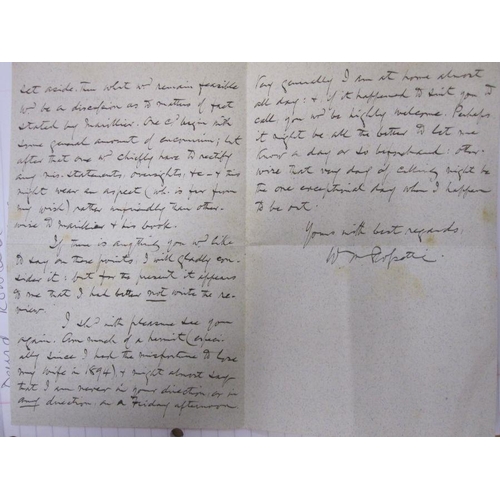 set aside, then what wd remain feasible
wd be a discussion as to matters of fact
stated by Marillier. One cd begin with
some general amount of encomium; but
after that one wd chiefly have to rectify
any mis-statements, oversights, &c - & this
might wear an aspect (wh. is far from
my wish) rather unfriendly than other-
wise to Marillier & his book.
If there is anything you wd like
to say on these points, I will gladly con-
sider it: but for the present it appears
to me that I had better not write the re-
view.
I shd with pleasure see you
again. Am much of a hermit (especi-
ally since I had the misfortune to lose
my wife in 1894), & might almost say
that I am never in your direction, or in
any direction, on a Friday afternoon
Very generally I am at home almost
all day: & if it happened to suit you to
call you wd be highly welcome. Perhaps
it might be all the better to let me
know a day or so beforehand: other-
wise that very day of calling might be
the one exceptional day when I happen
to be out.
Yours with best regards,
W M Rossetti